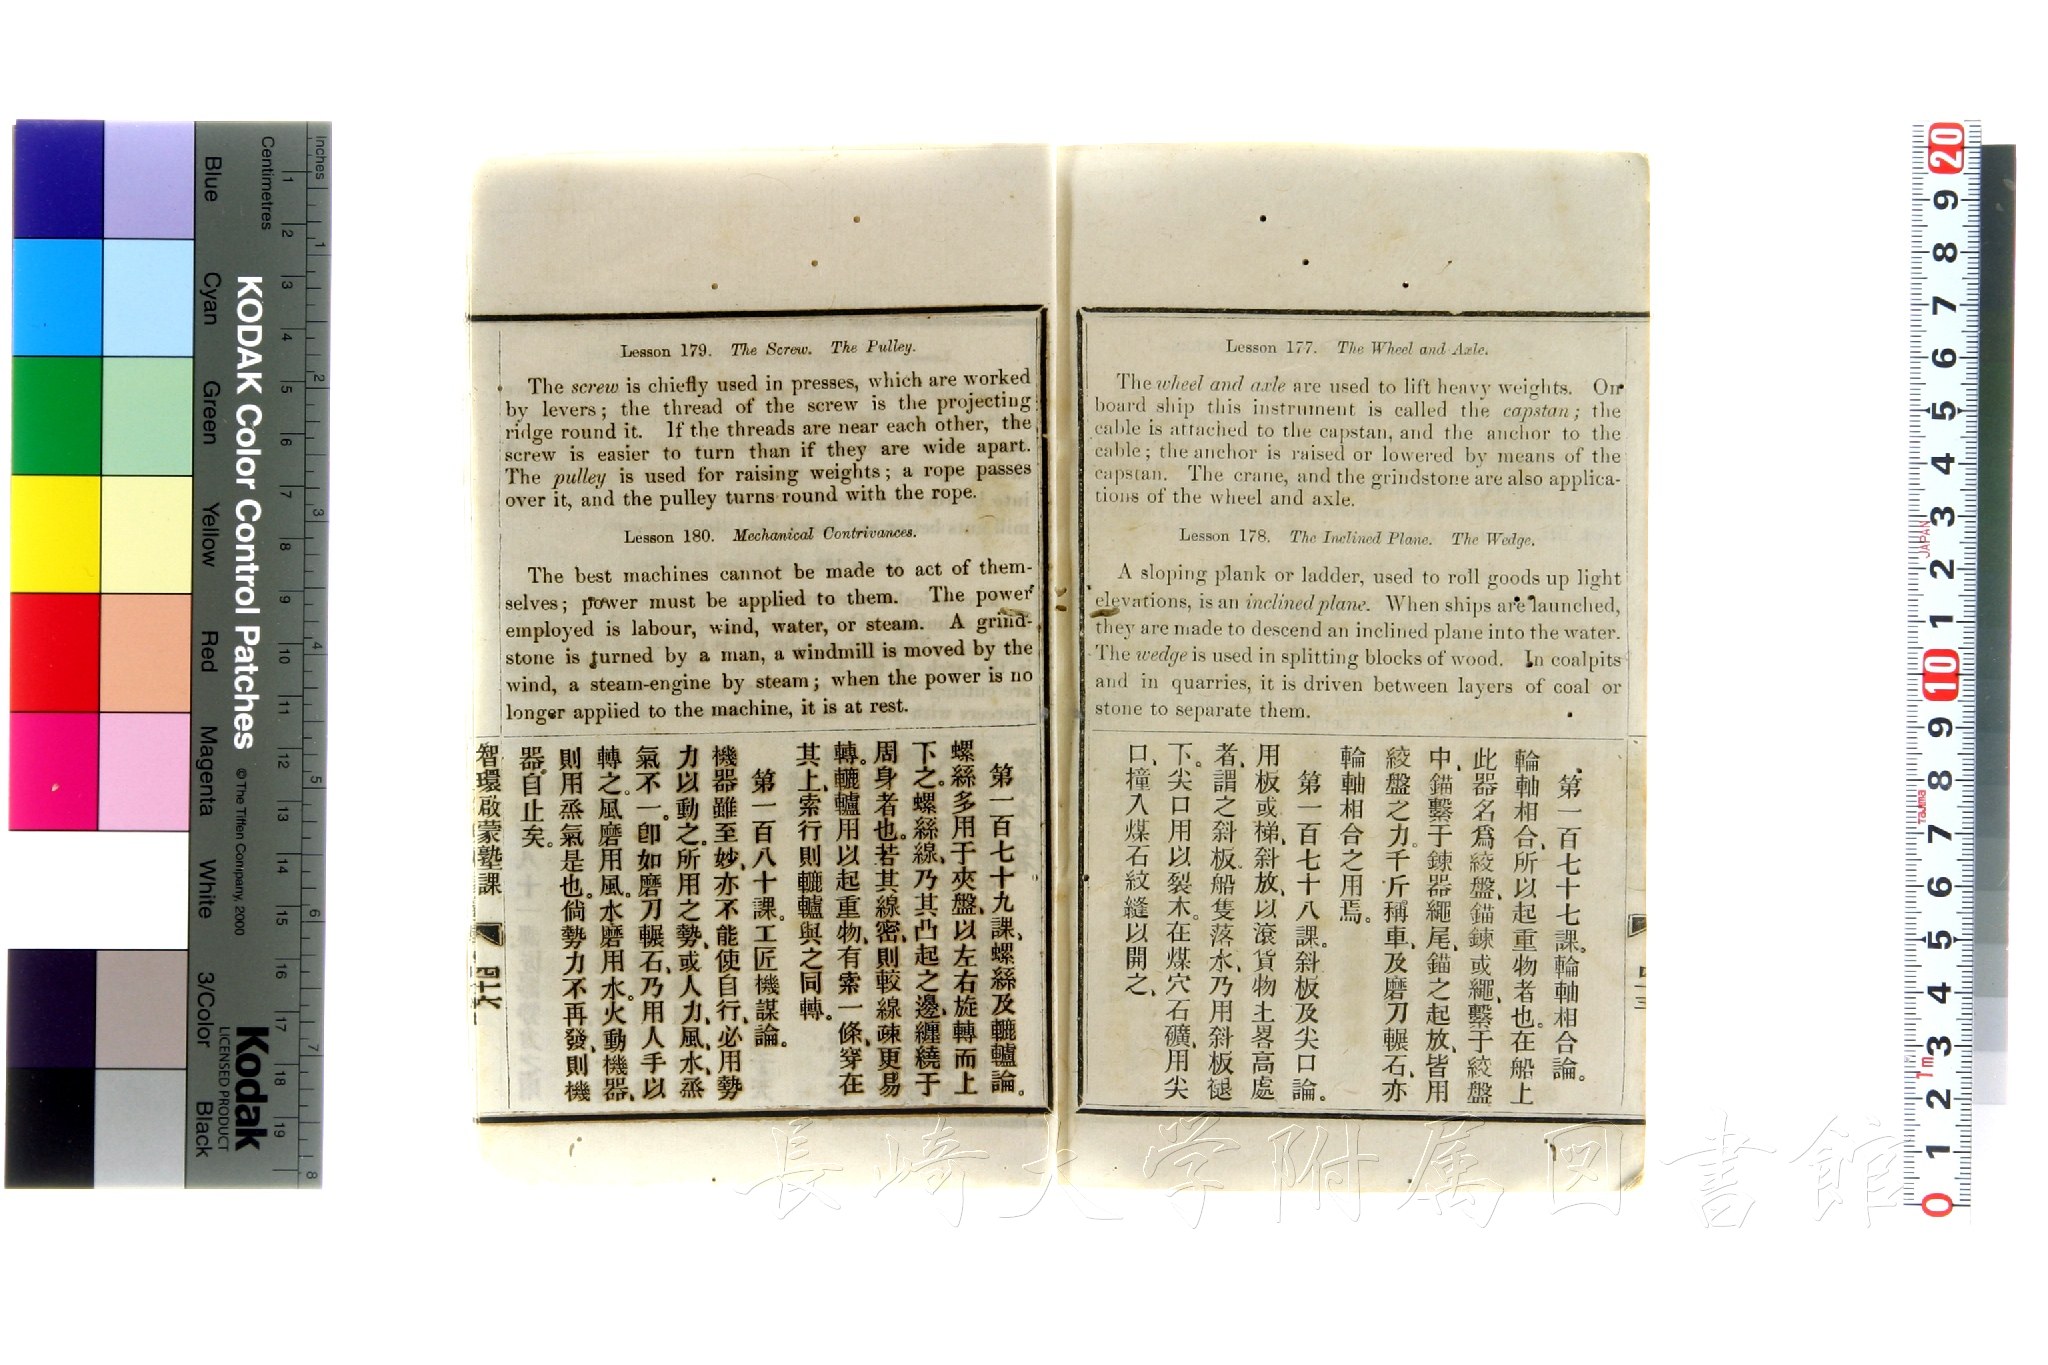 Lesson 177. The Wheel and Axle.
The wheel and axle are used to lift heavy weights. On
board ship this instrument is called the capstan; the
cable is attached to the capstan, and the anchor to the
cable; the anchor is raised or lowered by means of the
capstan. The crane, and the grindstone are also applica-
tions of the wheel and axle.
Lesson 178. The Inclined Plane. The Wedge.
A sloping plank or ladder, used to roll goods up light
elevations, is an inclined plane. When ships are launched,
they are made to descend an inclined plane into the water.
The wedge is used in splitting blocks of wood. In coalpits
and in quarries, it is driven between layers of coal or
stone to separate them.
第一百七十七課。輪軸相合論。
輪軸相合、所以起重物者也。在船上
此器名爲絞盤、錨鍊或繩、繫于絞盤
中、錨繫于鍊器繩尾、錨之起放、皆用
絞盤之力。千斤稱車、及磨刀輾石、亦
輪軸相合之用焉。
第一百七十八課。斜板及尖口論。
用板或梯、斜放、以滾貨物土畧高處
者、謂之斜板。船隻落水、乃用斜板褪
下。尖口用以裂木。在煤穴石礦、用尖
口、撞入煤石紋縫以開之、
Lesson 179. The Screw. The Pulley.
The screw is chiefly used in presses, which are worked
by levers; the thread of the screw is the projecting
ridge round it. If the threads are near each other, the
screw is easier to turn than if they are wide apart.
The pulley is used for raising weights; a rope passes
over it, and the pulley turns round with the rope.
Lesson 180. Mechanical Contrivances.
The best machines cannot be made to act of them-
selves; power must be applied to them. The power
employed is labour, wind, water, or steam. A grind-
stone is turned by a man, a windmill is moved by the
wind, a steam-engine by steam; when the power is no
longer applied to the machine, it is at rest.
第一百七十九課、螺絲及轆轤論。
螺絲多用于夾盤、以左右旋轉而上
下之。螺絲線、乃其凸起之邊、纏繞于
周身者也。若其線密、則較線疎更易
轉。轆轤用以起重物、有索一條、穿在
其上、索行則轆轤與之同轉。
第一百八十課。工匠機謀論。
機器雖至妙、亦不能使自行、必用勢
力以動之。所用之勢、或人力、風、水、烝
氣不一。卽如磨刀輾石、乃用人手以
轉之。風磨用風。水磨用水。火動機器、
則用烝氣是也。倘勢力不再發、則機
器自止矣。
智環啟蒙塾課
四十六
KODAK Color Control Patches
© The Tiffen Company, 2000
Kodak
LICENSED PRODUCT
Inches 1 2 3 4 5 6 7 8
Centimetres 1 2 3 4 5 6 7 8 9 10 11 12 13 14 15 16 17 18 19
Blue Cyan Green Yellow Red Magenta White 3/Color Black
20 9 8 7 6 5 4 3 2 1 10 9 8 7 6 5 4 3 2 1 0
JAPAN
TaJIma
1m
長崎大学附属図書館